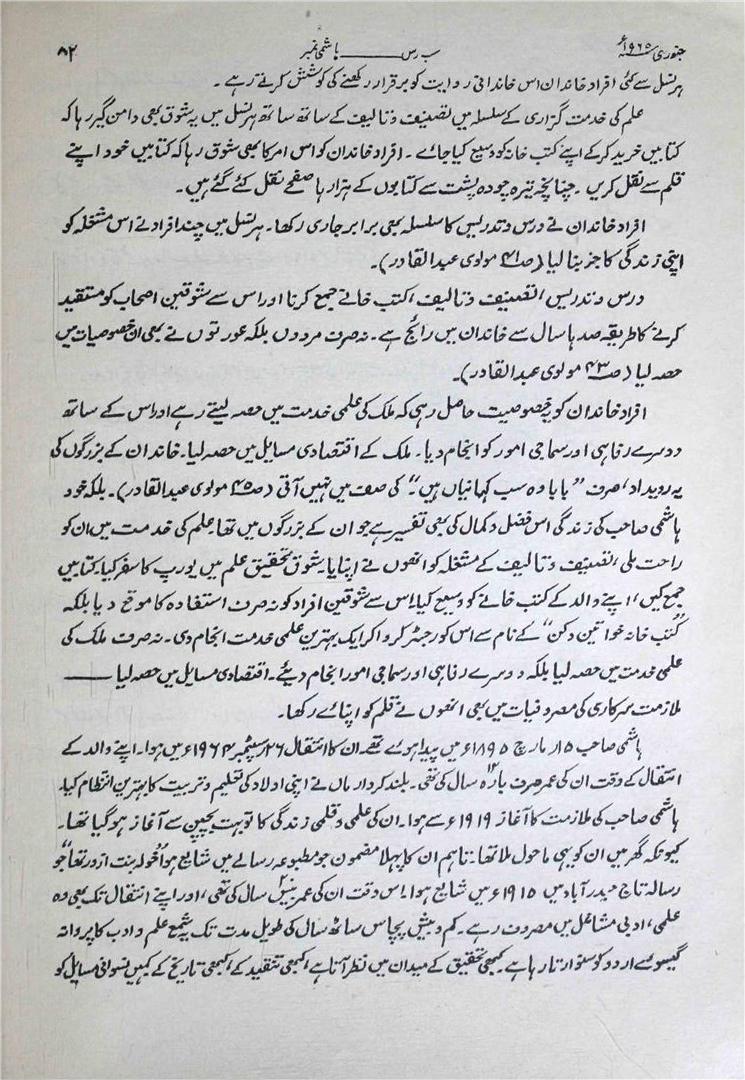 جنوری ۱۹۶۵ء سب رس ہاشمی نمبر ۸۲
ہر نسل سے کئی افراد خاندان اس خاندانی روایت کو برقرار رکھنے کی کوشش کرتے رہے۔
علم کی خدمت گزاری کے سلسلہ میں تصنیف و تالیف کے ساتھ ساتھ ہر نسل میں یہ شوق بھی دامن گیر رہا کہ
کتابیں خرید کر کے اپنے کتب خانہ کو وسیع کیا جائے۔ افراد خاندان کو اس امر کا بھی شوق رہا کہ کتابیں خود اپنے
قلم سے نقل کریں۔ چنانچہ تیرہ چودہ پشت سے کتابوں کے ہزارہا صفحے نقل کئے گئے ہیں۔
افراد خاندان نے درس و تدریس کا سلسلہ بھی برابر جاری رکھا۔ ہر نسل میں چند افراد نے اس مشغلہ کو
اپنی زندگی کا جز بنا لیا (صـ۴۱ مولوی عبدالقادر)۔
درس و تدریس، تصنیف و تالیف، کتب خانے جمع کرنا اور اس سے شوقین اصحاب کو مستفید
کرنے کا طریقہ صدہا سال سے خاندان میں رائج ہے۔ نہ صرف مردوں بلکہ عورتوں نے بھی ان خصوصیات میں
حصہ لیا (صـ۴۳ مولوی عبدالقادر)۔
افراد خاندان کو یہ خصوصیت حاصل رہی کہ ملک کی علمی خدمت میں حصہ لیتے رہے اور اس کے ساتھ
دوسرے رفاہی اور سماجی امور کو انجام دیا۔ ملک کے اقتصادی مسایل میں حصہ لیا۔ خاندان کے بزرگوں کی
یہ رویداد، صرف ”بابا وہ سب کہانیاں ہیں“ کی صف میں نہیں آتی (صـ۴۵ مولوی عبدالقادر)۔ بلکہ خود
ہاشمی صاحب کی زندگی اس فضل و کمال کی بھی تفسیر ہے جو ان کے بزرگوں میں تھا۔ علم کی خدمت میں ان کو
راحت ملی، تصنیف و تالیف کے مشغلہ کو انھوں نے اپنایا۔ شوق تحقیق علم میں یورپ کا سفر کیا۔ کتابیں
جمع کیں، اپنے والد کے کتب خانے کو وسیع کیا۔ اس سے شوقین افراد کو نہ صرف استفادہ کا موقع دیا بلکہ
”کتب خانہ خواتین دکن“ کے نام سے اس کو رجسٹر کروا کر ایک بہترین علمی خدمت انجام دی۔ نہ صرف ملک کی
علمی خدمت میں حصہ لیا بلکہ دوسرے رفاہی اور سماجی امور انجام دیئے۔ اقتصادی مسایل میں حصہ لیا ——
ملازمت سرکاری کی مصروفیات میں بھی انھوں نے قلم کو اپنائے رکھا۔
ہاشمی صاحب ۱۵ مارچ ۱۸۹۵ء میں پیدا ہوے تھے۔ ان کا انتقال ۲۶ سپٹمبر ۱۹۶۴ء میں ہوا۔ اپنے والد کے
انتقال کے وقت ان کی عمر صرف بارہ ۱۲ سال کی تھی۔ بلند کردار ماں نے اپنی اولاد کی تعلیم و تربیت کا بہترین انتظام کیا۔
ہاشمی صاحب کی ملازمت کا آغاز ۱۹۱۹ء سے ہوا۔ ان کی علمی و قلمی زندگی کا تو بہت بچپن سے آغاز ہو گیا تھا۔
کیونکہ گھر میں ان کو یہی ماحول ملا تھا۔ تاہم ان کا پہلا مضمون جو مطبوعہ رسالے میں شایع ہوا ”خولہ بنت ازور تھا“ جو
رسالہ تاج حیدرآباد میں ۱۹۱۵ء میں شایع ہوا۔ اس وقت ان کی عمر بیس ۲۰ سال کی تھی، اور اپنے انتقال تک بھی وہ
علمی، ادبی مشاغل میں مصروف رہے۔ کم و بیش پچاس ساٹھ سال کی طویل مدت تک یہ شمع علم و ادب کا پروانہ
گیسوئے اردو کو سنوارتا رہا ہے۔ کبھی تحقیق کے میدان میں نظر آتا ہے، کبھی تنقید کے، کبھی تاریخ کے کہیں نسوانی مسایل کو